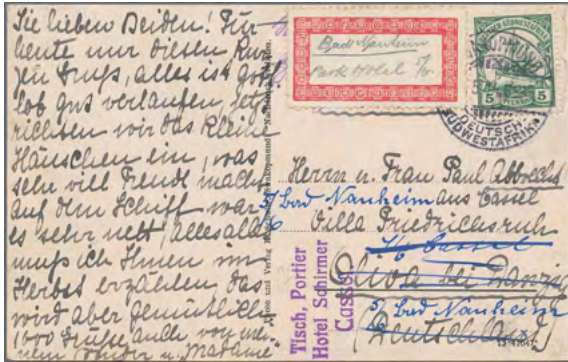 Sie lieben Beiden! Für
heute nur diesen Kur-
zen Gruß, alles ist gott
lob gut verlaufen, jetzt
richten wir das kleine
Häuschen ein, was
sehr viel Freude macht
auf dem Schiff war
es sehr nett, alles alles
muß ich Ihnen im
Herbst erzählen, das
wird aber gemütlich
1000 Grüße auch von mei-
nem Bruder u. Madame
Bad Nauheim
Park Hotel
5 PFENNIG 5
DEUTSCH-
SÜDWESTAFRIKA
Herrn u. Frau Paul
Bad Nauheim aus Cassel
Villa Friedrichsruh
Cassel
Oliva bei Danzig
Bad Nauheim
Deutschland
Tisch, Portier
Hotel Schirmer
Cassel